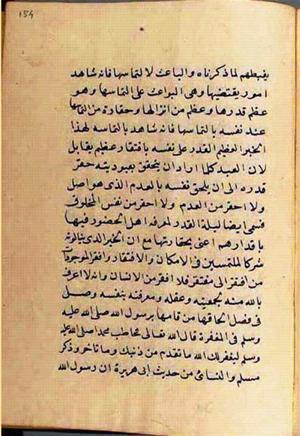 ١٥٤
بغبطهم لما ذكرناه والباعث لالتماسها فانه شاهد
امور يقتضيها وهى البواعث على التماسها وهو
عظم قدرها وعظم من انزلها وحقارة من التمسها
عند نفسه بالتماسها فانه شاهد بالتماسه لهذا
الخير العظيم القدر على نفسه بافتقار عظيم يقابل
لان العبد كلما اراد ان يتحقق بعبوديته حقر
قدره الى ان يلحق نفسه بالعدم الذى هو اصل
ولا احقر من العدم ولا احقر من نفس المخلوق
فسمى ايضا ليلة القدر لمعرفة اهل الحضور فيها
باقدارهم اعنى بحقارتها مع ان الخير الذى ينالونه
شركا الملتمسين فى الامكان والافتقار وافقر الموجودات
من افتقر الى مفتقر فلا افقر من الانسان وانه لا اعرف
بالله منه لجمعيته وعقله ومعرفته بنفسه وصل
فى فضل الحاقها من قامها برسول الله صلى الله عليه
وسلم فى المغفرة قال الله تعالى يخاطب محمدا صلى الله عليه
وسلم ليغفر لك الله ما تقدم من ذنبك وما تاخر وذكر
مسلم والنسائى من حديث ابى هريرة ان رسول الله